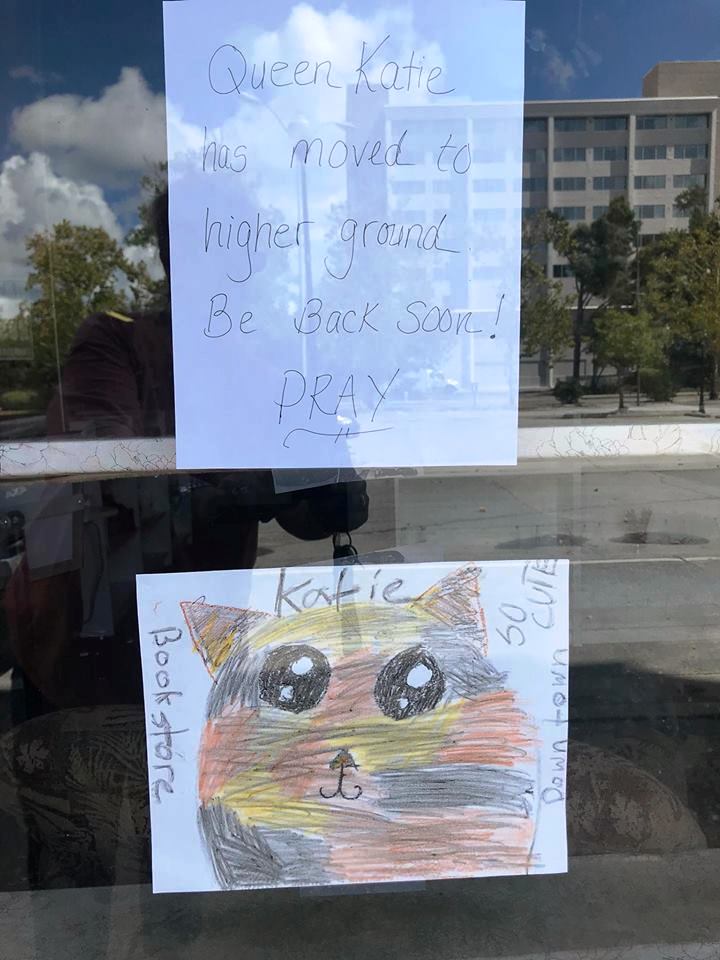 Queen Katie
has moved to
higher ground.
Be Back soon!
PRAY
Katie
Bookstore
SO
CUTE
Downtown